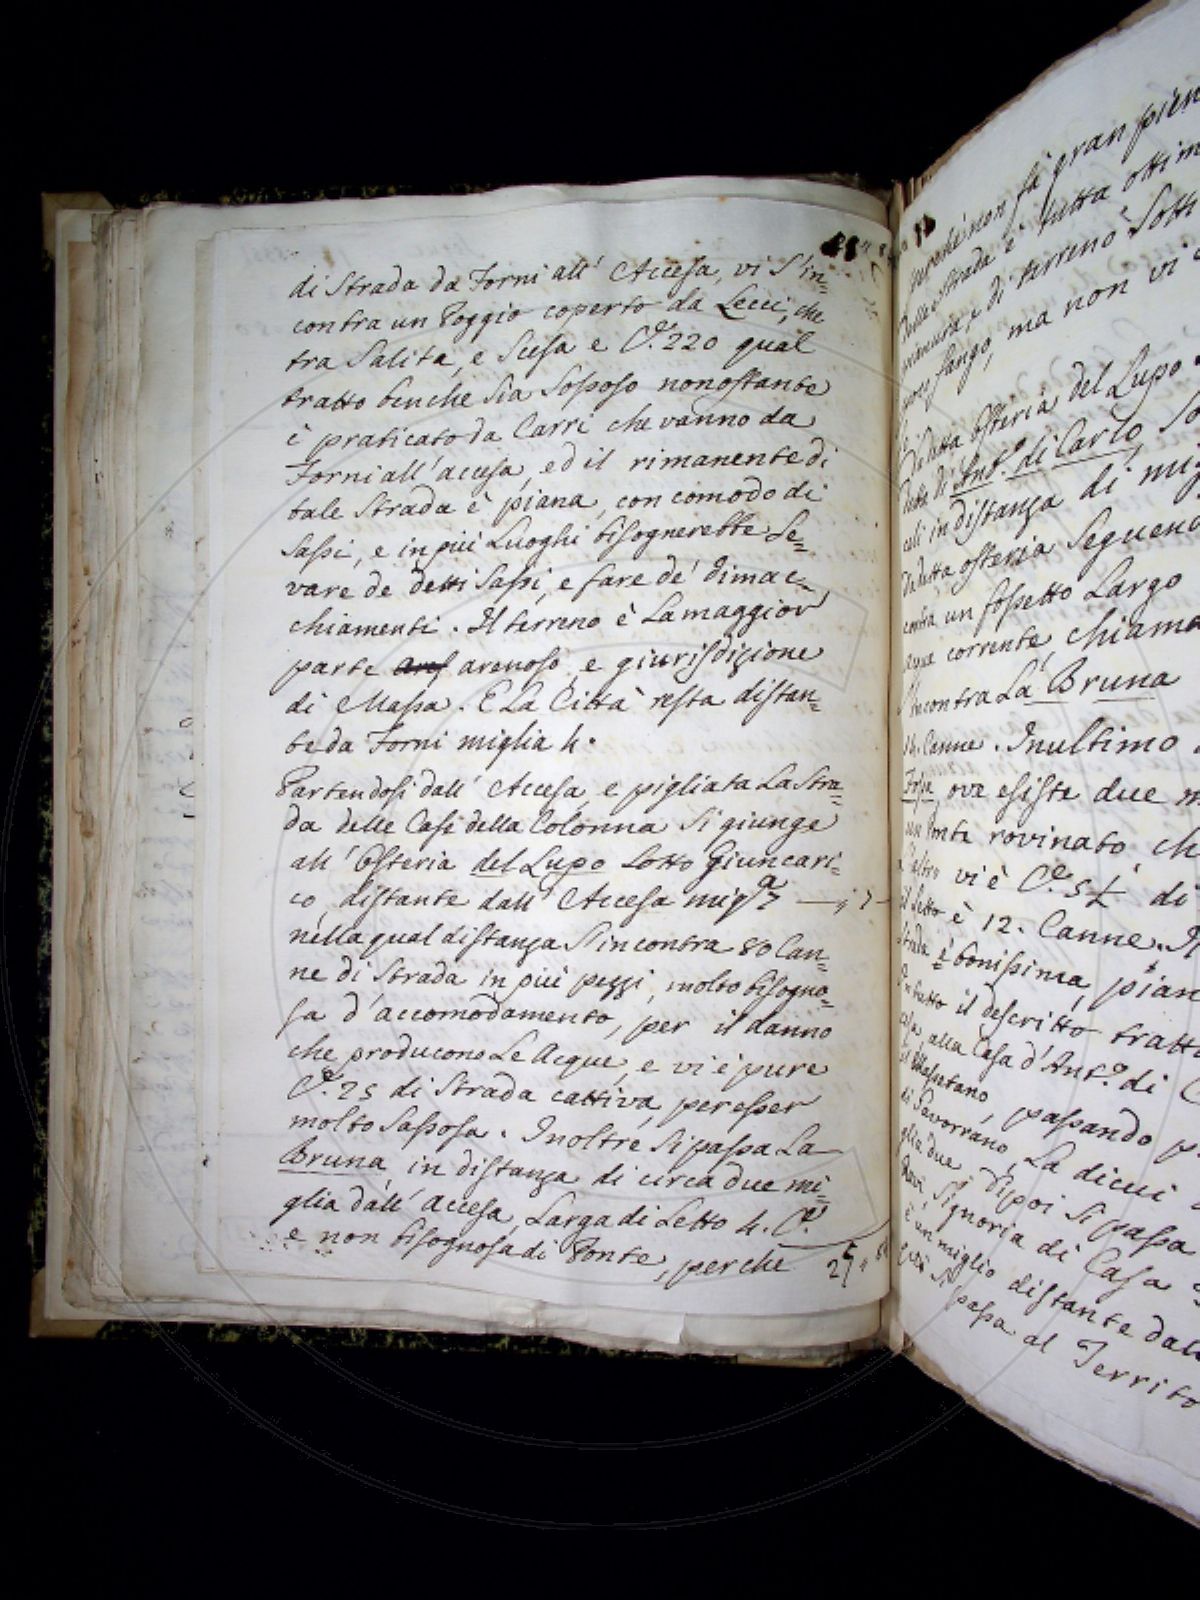 di Strada da Forni all' Accesa, vi s'in=
contra un Poggio coperto da Lecci, che
tra Salita, e Scesa e C.e 220 qual
tratto benche sia Sassoso nonostante
è praticato da Carri che vanno da
Forni all' accesa, ed il rimanente di
tale Strada è piana, con comodo di
Sassi, e in più Luoghi bisognerebbe Le=
vare de detti Sassi, e fare de' dimac=
chiamenti. Il terreno è La maggior
parte aref arenoso, e giurisdizione
di Massa. E La Città resta distan=
te da Forni miglia 4.
Partendosi dall' Accesa, e pigliata La Stra=
da delle Case della Colonna si giunge
all' Osteria del Lupo sotto Giuncari=
co distante dall' Accesa mig.a 7 — „ 7 –
nella qual distanza s'incontra 80 Can=
ne di Strada in più pezzi, molto bisogno=
sa d'accomodamento, per il danno
che producono Le Acque, e vi è pure
C.e 25 di Strada cattiva, per esser
molto Sassosa. Inoltre si passa La
Bruna in distanza di circa due mi=
glia dall' accesa, Larga di Letto 4. C.e
e non bisognosa di Ponte, perche
27 „
perchè non fà gran pien
Strada è tutta ottim
pianura, e di terreno Sott
fango, ma non vi
Di detta Osteria del Lupo
di Ant.o di Carlo, So
celi in distanza di mig
Da detta osteria Seguen
contra un fossetto Largo
aqua corrente, chiama
S'incontra La Bruna
14. Canne. Inultimo
ove esiste due m
un Ponte rovinato, ch
vi è C.e 5½ di
il Letto è 12. Canne. I
Strada è bonissima, pian
In tutto il descritto tratto
alla Casa d'Ant.o di C
il Massetano, passando p
di Gavorrano, La di cui
glia due, dipoi si passa
Ravi, Signoria di Casa
è un miglio distante dal
si passa al Territo